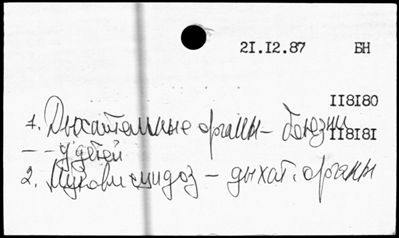 21.12.87 БН
118180
1. Дыхательные органы - болезни
118181
- - у детей
2. Муковисцидоз - дыхат. органы